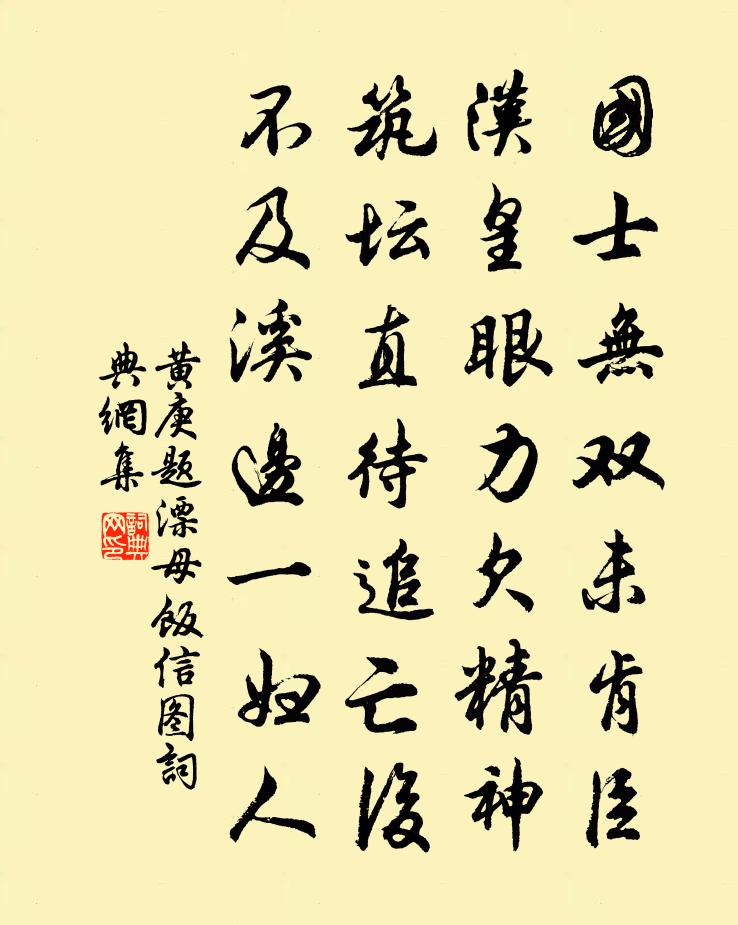 國士無双未肯臣
漢皇眼力欠精神
筑坛直待追亡後
不及溪邊一妇人
黄庚题漂母飯信图詞
典網集
詞典
网印